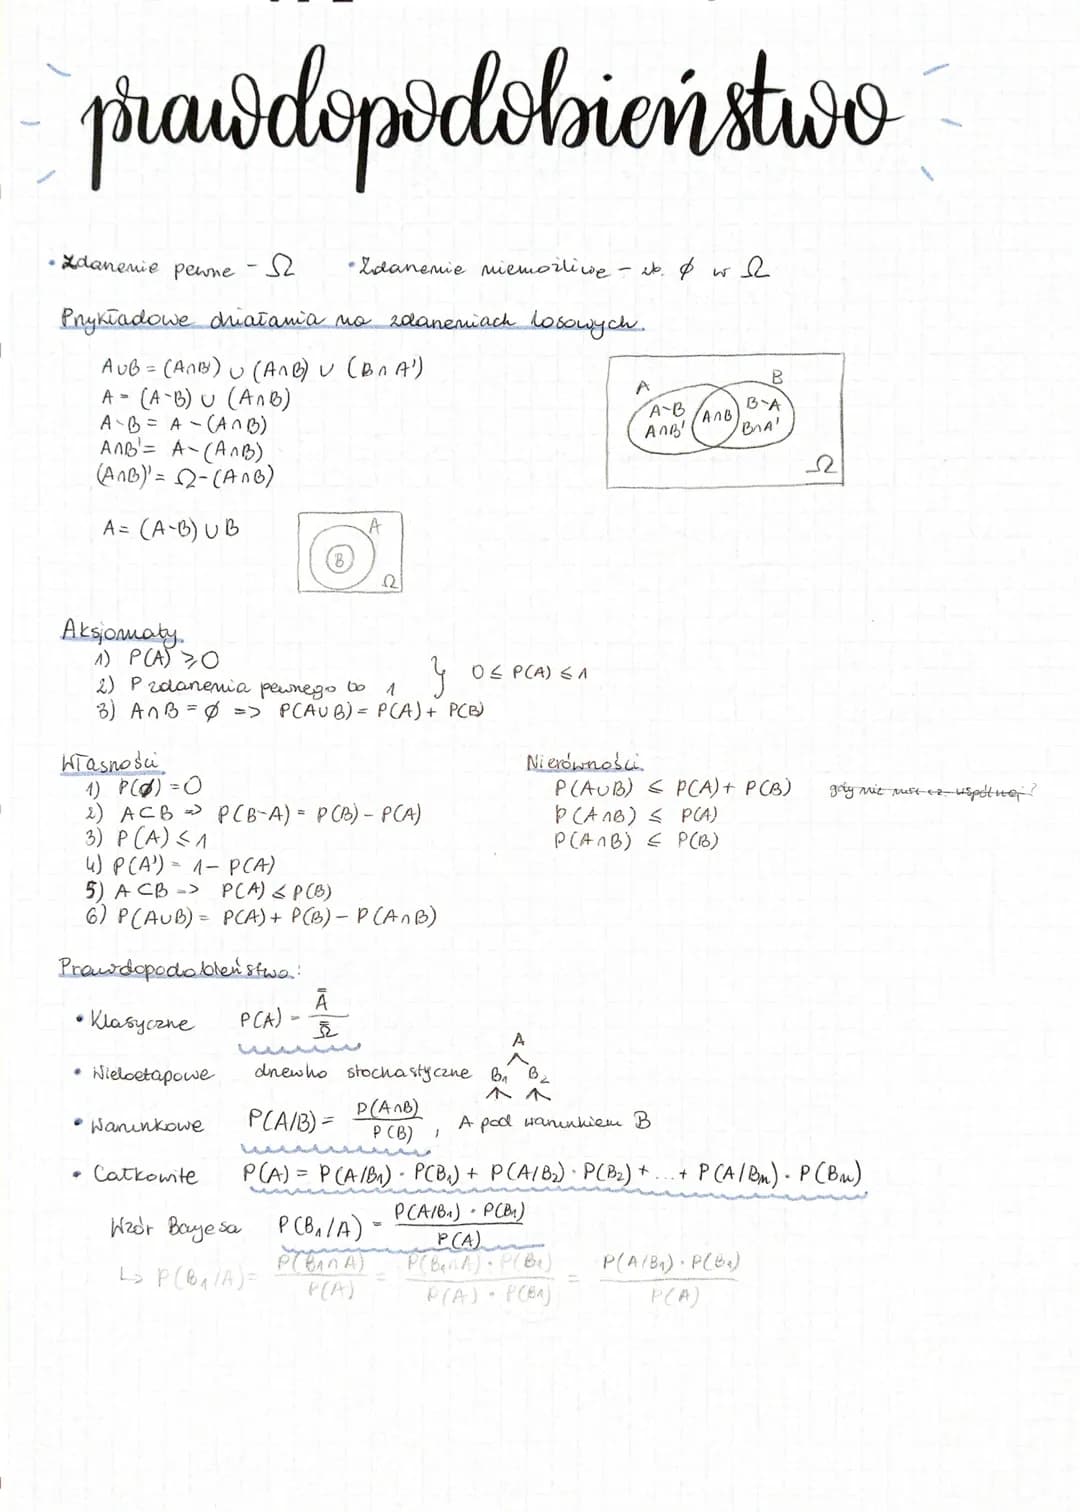 prawdopodobieństwo
• Zdarzenie pewne - Ω
• Zdarzenie niemożliwe - zb. ∅ w Ω
Przykładowe działania na zdarzeniach losowych.
A∪B = (A∩B') ∪ (A∩B) ∪ (B∩A')
A = (A-B) ∪ (A∩B)
A-B = A - (A∩B)
A∩B' = A-(A∩B)
(A∩B)' = Ω-(A∩B)
A
B
A-B
A∩B'
A∩B
B-A
B∩A'
Ω
A = (A-B) ∪ B
A
B
Ω
Aksjomaty.
1) P(A) ≥ 0
2) P zdarzenia pewnego to 1
} 0 ≤ P(A) ≤ 1
3) A∩B = ∅ => P(A∪B) = P(A) + P(B)
Własności
1) P(∅) = 0
2) A⊂B => P(B-A) = P(B) - P(A)
3) P(A) ≤ 1
4) P(A') = 1 - P(A)
5) A⊂B => P(A) ≤ P(B)
6) P(A∪B) = P(A) + P(B) - P(A∩B)
Nierówności.
P(A∪B) ≤ P(A) + P(B)
P(A∩B) ≤ P(A)
P(A∩B) ≤ P(B)
Prawdopodobieństwo:
• Klasyczne P(A) = A̿ / Ω̿
• Wieloetapowe drzewko stochastyczne
A
B₁ B₂
• Warunkowe P(A/B) = P(A∩B) / P(B) , A pod warunkiem B
• Całkowite P(A) = P(A/B₁) · P(B₁) + P(A/B₂) · P(B₂) + ... + P(A/Bₙ) · P(Bₙ)
Wzór Bayesa P(B₁/A) = P(A/B₁) · P(B₁) / P(A)
↳ P(B₁/A) = P(B₁∩A) / P(A) = P(B₁∩A) · P(B₁) / P(A) · P(B₁) = P(A/B₁) · P(B₁) / P(A)